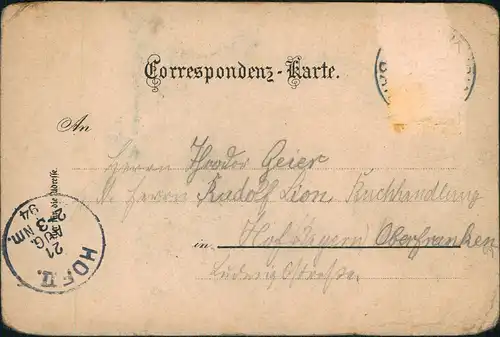 Correspondenz-Karte.
An
Herrn Theodor Geier
Herrn Rudolf Lion, Buchhandlung
in Hof i/Bayern Oberfranken
Ludwigstraße
für die Adresse.
HOF II.
21
AUG
NM.
94